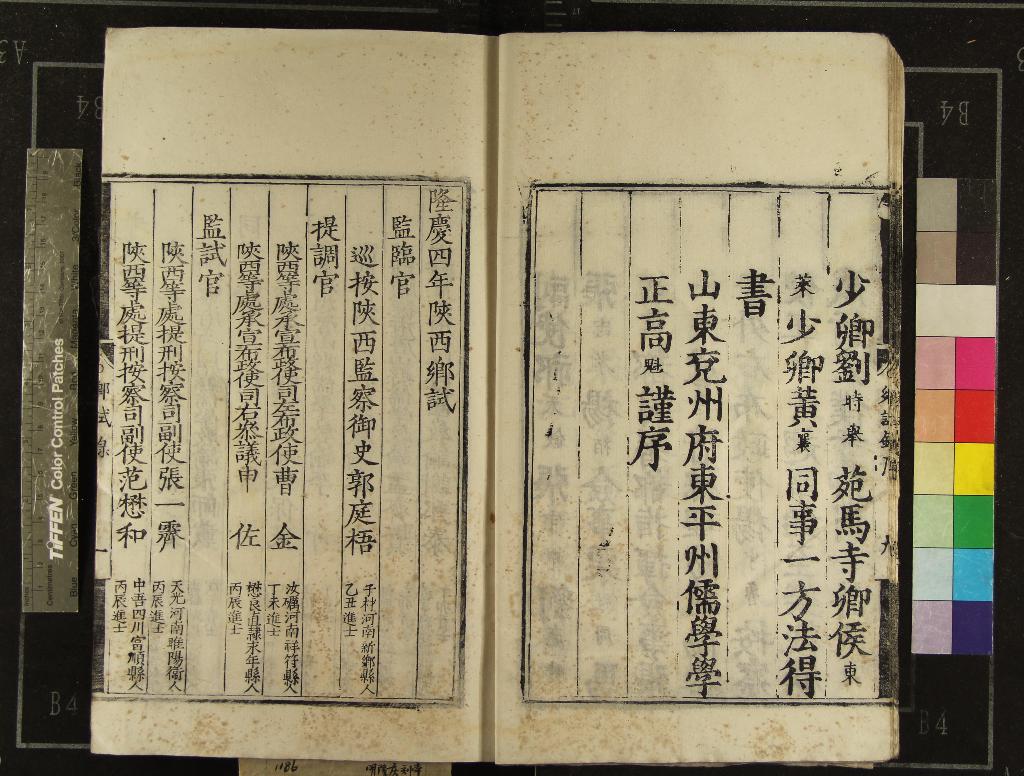 少卿劉時舉苑馬寺卿侯東
萊少卿黃襄同事一方法得
書
山東兗州府東平州儒學學
正高魁謹序
隆慶四年陝西鄉試
監臨官
巡按陝西監察御史郭庭梧 子村河南新鄉縣人 乙丑進士
提調官
陝西等處承宣布政使司左布政使曹金 汝礪河南祥符縣人 丁未進士
陝西等處承宣布政使司右叅議申佐 懋良直隸永年縣人 丙辰進士
監試官
陝西等處提刑按察司副使張一霽 天光河南睢陽衛人 丙辰進士
陝西等處提刑按察司副使范懋和 中吾四川富順縣人 丙辰進士
鄉試錄
一
九
TIFFEN Color Control Patches
B4
B4
B4
B4
A3
1186